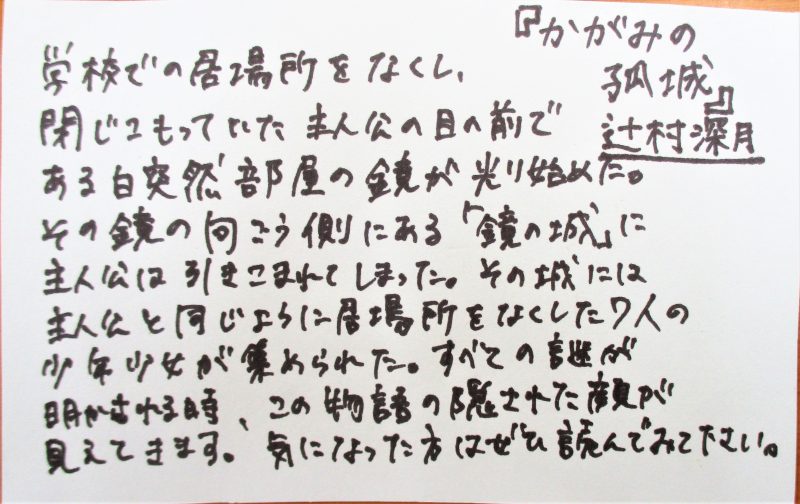 『かがみの
孤城』
辻村深月
学校での居場所をなくし、
閉じこもっていた主人公の目の前で
ある日突然部屋の鏡が光り始めた。
その鏡の向こう側にある「鏡の城」に
主人公は引きこまれてしまった。その城には
主人公と同じように居場所をなくした7人の
少年少女が集められた。すべての謎が
明かされる時、この物語の隠された顔が
見えてきます。気になった方はぜひ読んでみて下さい。